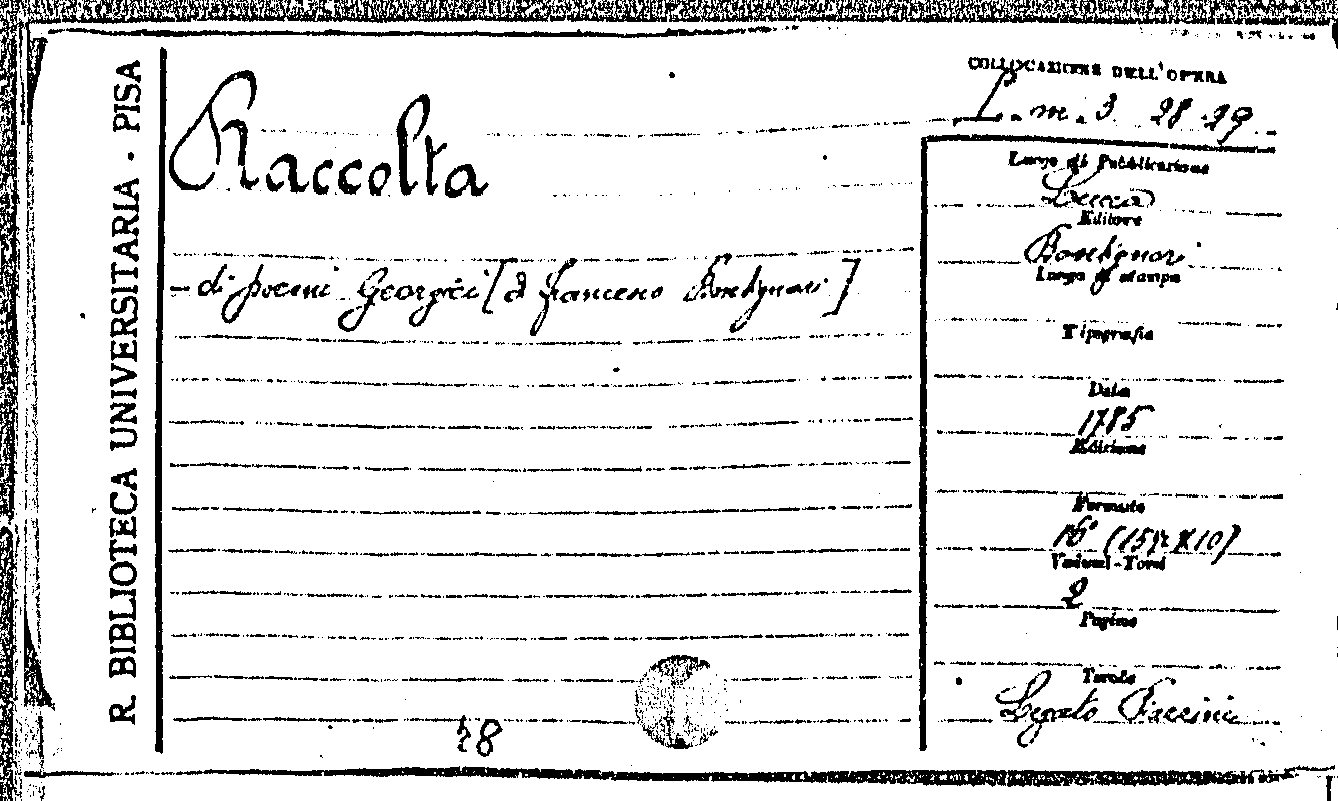 R. BIBLIOTECA UNIVERSITARIA - PISA
Raccolta
- di poemi Georgici [di Francesco Bonsignori]
28
COLLOCAZIONE DELL'OPERA
L. m. 3 28-29
Luogo di Pubblicazione
Lucca
Editore
Bonsignori
Luogo di stampa
Tipografia
Data
1785
Edizione
Formato
16° (15½X10)
Volumi-Tomi
2
Pagine
Tavole
Legato Faccini